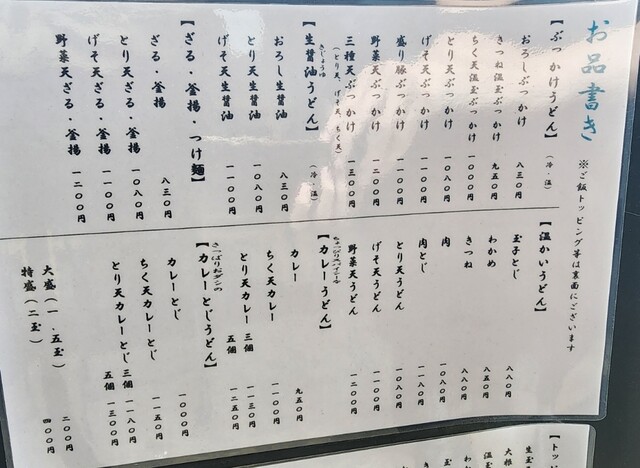 お品書き
※ご飯トッピング等は裏面にございます
【ぶっかけうどん】(冷・温)
おろしぶっかけ 八三〇円
きつね温玉ぶっかけ 九五〇円
ちく天温玉ぶっかけ 一一〇〇円
とり天ぶっかけ 一〇八〇円
げそ天ぶっかけ 一一〇〇円
盛り豚ぶっかけ 一一〇〇円
野菜天ぶっかけ 一二〇〇円
三種天ぶっかけ 一三〇〇円
(とり天、げそ天、ちく天)
きじょうゆ
【生醤油うどん】(冷・温)
おろし生醤油 八三〇円
とり天生醤油 一〇八〇円
げそ天生醤油 一一〇〇円
【ざる・釜揚・つけ麺】
ざる・釜揚 八三〇円
とり天ざる・釜揚 一〇八〇円
げそ天ざる・釜揚 一一〇〇円
野菜天ざる・釜揚 一二〇〇円
【温かいうどん】
玉子とじ 八八〇円
わかめ 八五〇円
きつね 八八〇円
肉 一〇八〇円
肉とじ 一一八〇円
とり天うどん 一〇八〇円
げそ天うどん 一一〇〇円
野菜天うどん 一二〇〇円
ちょっぴりスパイシーな
【カレーうどん】
カレー 九五〇円
ちく天カレー 一一〇〇円
とり天カレー 三個 一一三〇円
五個 一二五〇円
さっぱりおダシの
【カレーとじうどん】
カレーとじ 一〇〇〇円
ちく天カレーとじ 一一五〇円
とり天カレーとじ 三個 一一八〇円
五個 一三〇〇円
大盛(一.五玉) 二〇〇円
特盛(二玉) 四〇〇円
【トッ
生玉
大根
温玉
わか
きつ